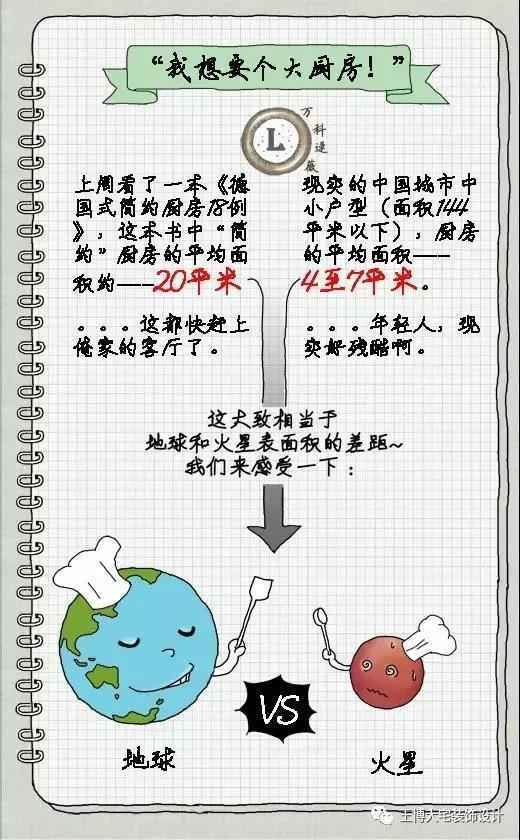 “我想要个大厨房!”
L
万科速薇
上周看了一本《德
国式简约厨房18例
》，这本书中“简
约”厨房的平均面
积约——20平米
。。。这都快赶上
俺家的客厅了。
现实的中国城市中
小户型（面积144
平米以下），厨房
的平均面积——
4至7平米。
。。。年轻人，现
实好残酷啊。
这大致相当于
地球和火星表面积的差距~
我们来感受一下：
VS
地球
火星
土博大宅装饰设计